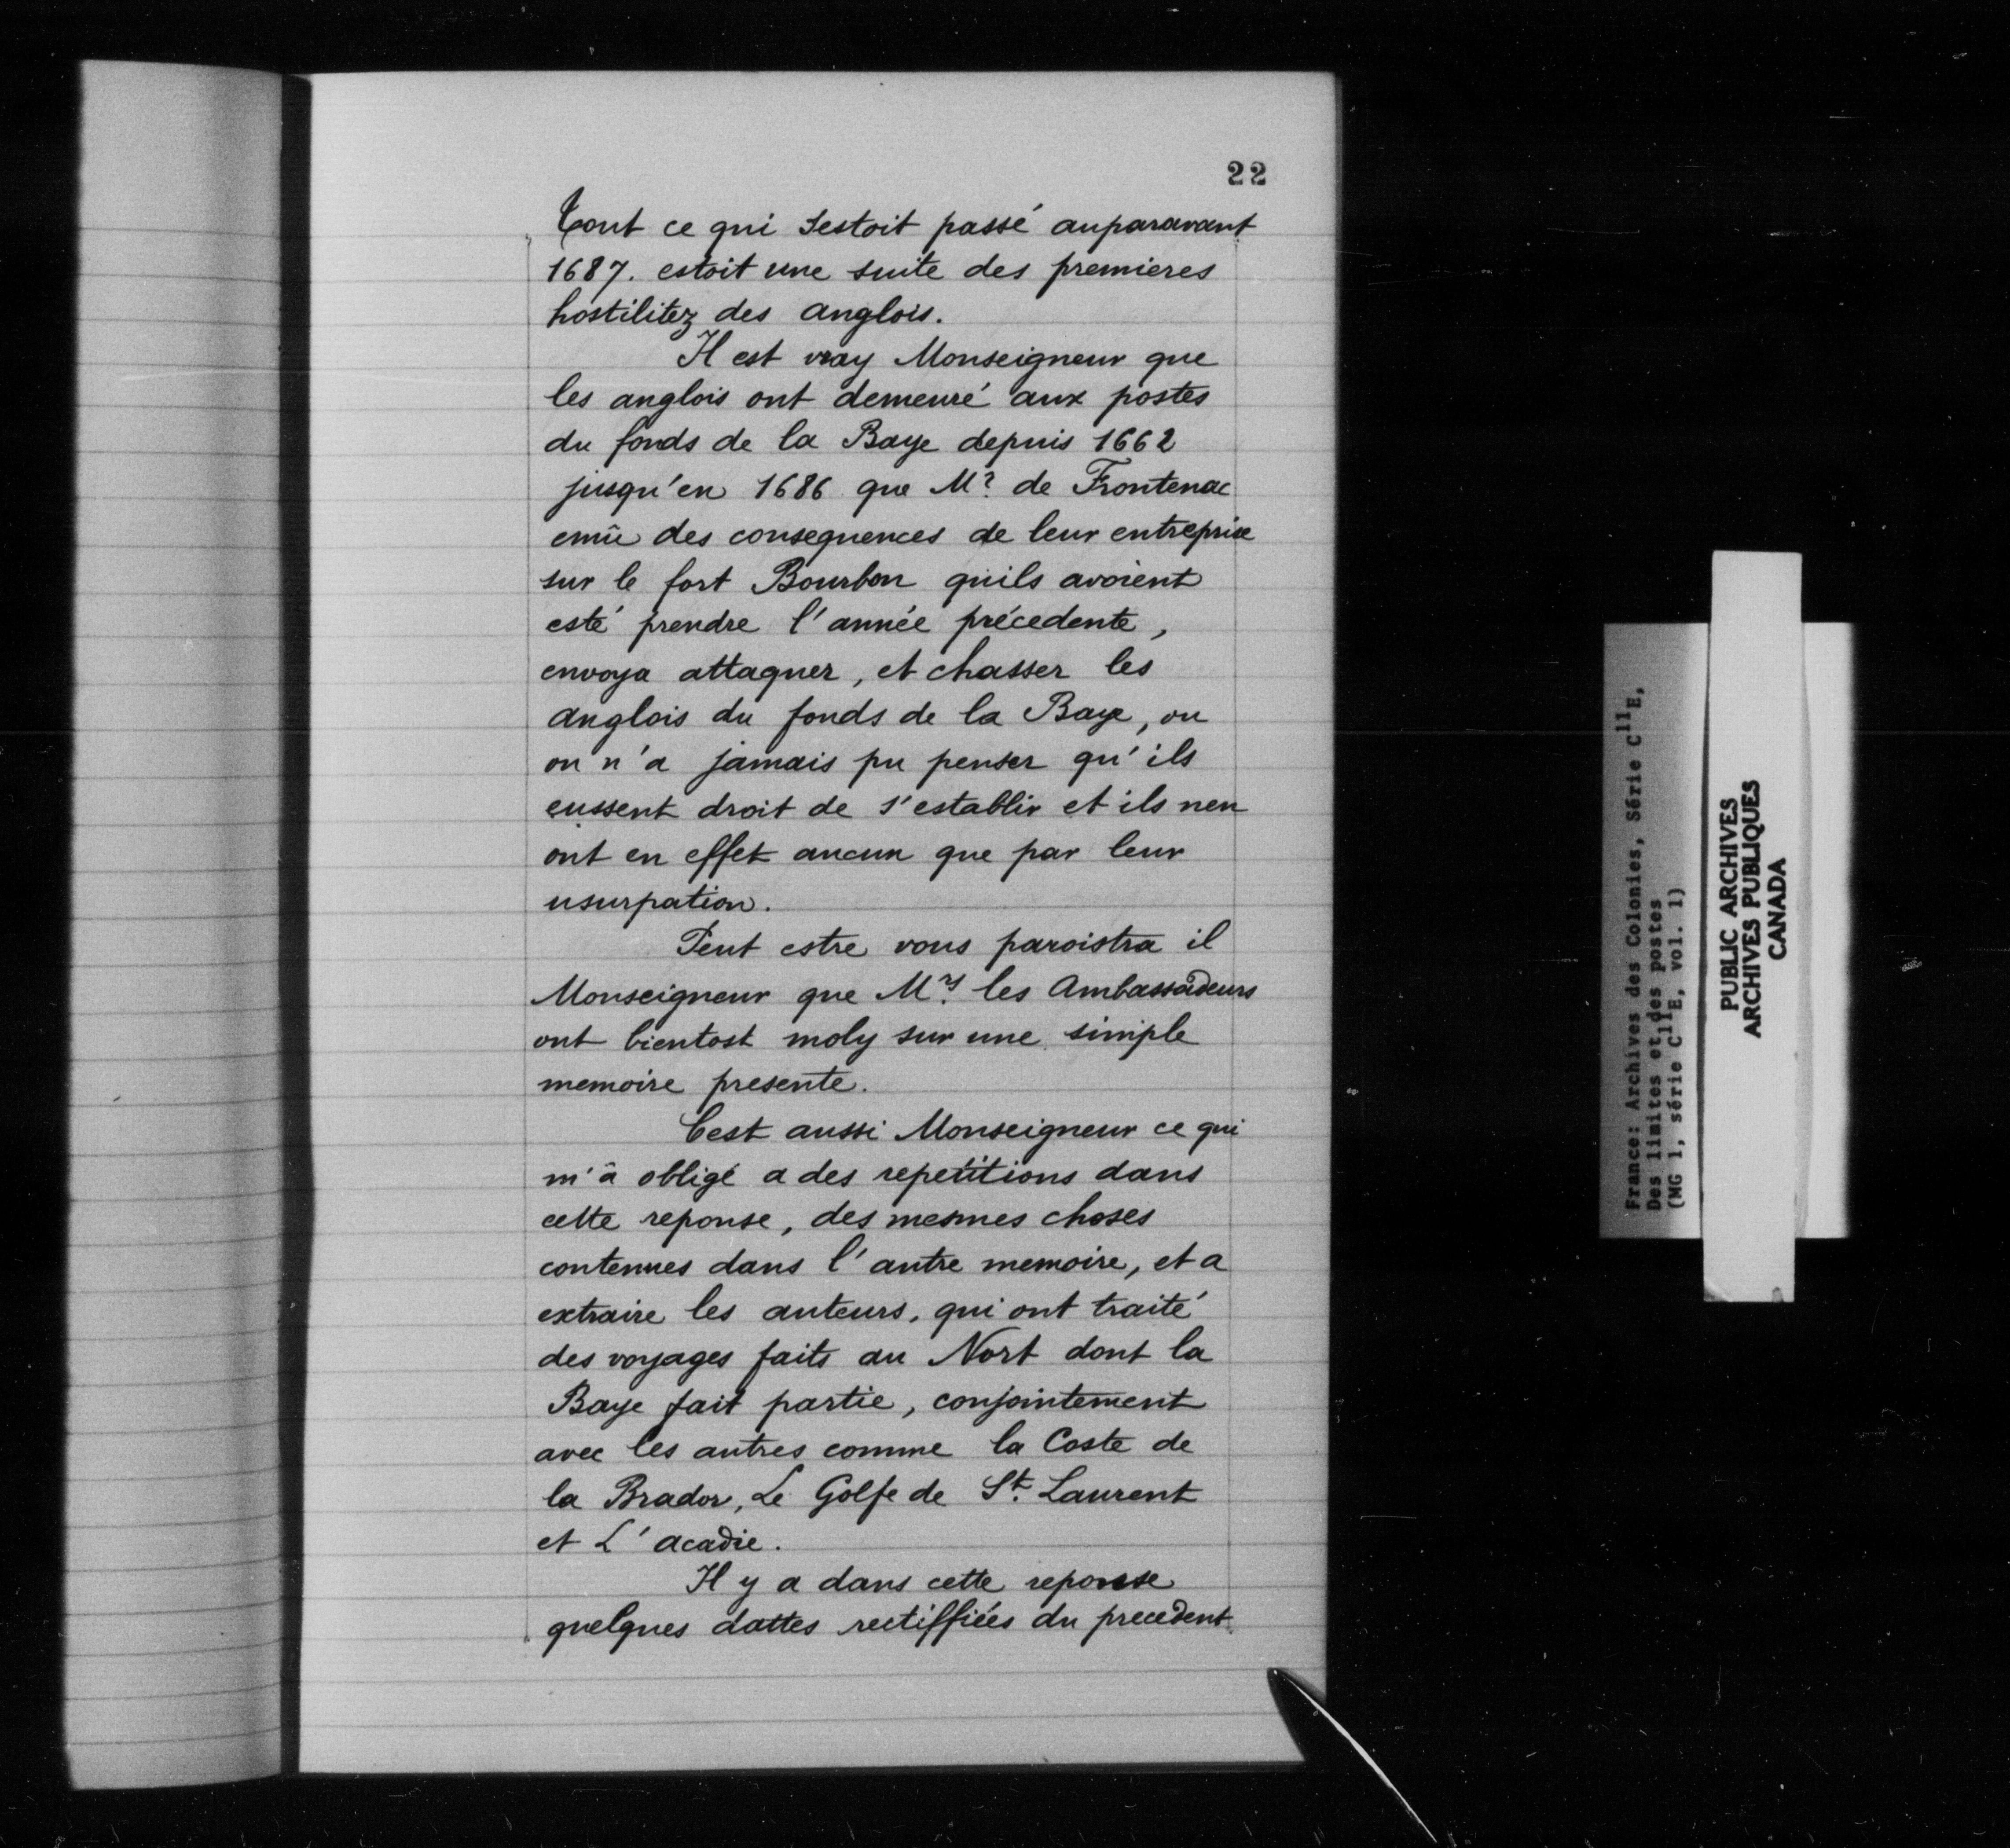 22
Tout ce qui sestoit passé auparavant
1687. estoit une suite des premieres
hostilitez des anglois.
Il est vray Monseigneur que
les anglois ont demeuré aux postes
du fonds de la Baye depuis 1662
jusqu'en 1686 que Mr. de Frontenac
emû des consequences de leur entreprise
sur le fort Bourbon quils avoient
esté prendre l'année précedente,
envoya attaquer, et chasser les
anglois du fonds de la Baye, ou
on n'a jamais pu penser qu'ils
eussent droit de s'establir et ils nen
ont en effet aucun que par leur
usurpation.
Peut estre vous paroistra il
Monseigneur que Mrs. les Ambassadeurs
ont bientost moly sur une simple
memoire presente.
Cest aussi Monseigneur ce qui
m'â obligé a des repetitions dans
cette reponse, des mesmes choses
contenues dans l'autre memoire, et a
extraire les auteurs, qui ont traité
des voyages faits au Nort dont la
Baye fait partie, conjointement
avec les autres comme la Coste de
la Brador, Le Golfe de St. Laurent
et L'acadie.
Il y a dans cette reponse
quelques dattes rectiffiées du precedent
France: Archives des Colonies, Série C11E,
Des limites et des postes
(MG 1, série C11E, vol. 1)
PUBLIC ARCHIVES
ARCHIVES PUBLIQUES
CANADA